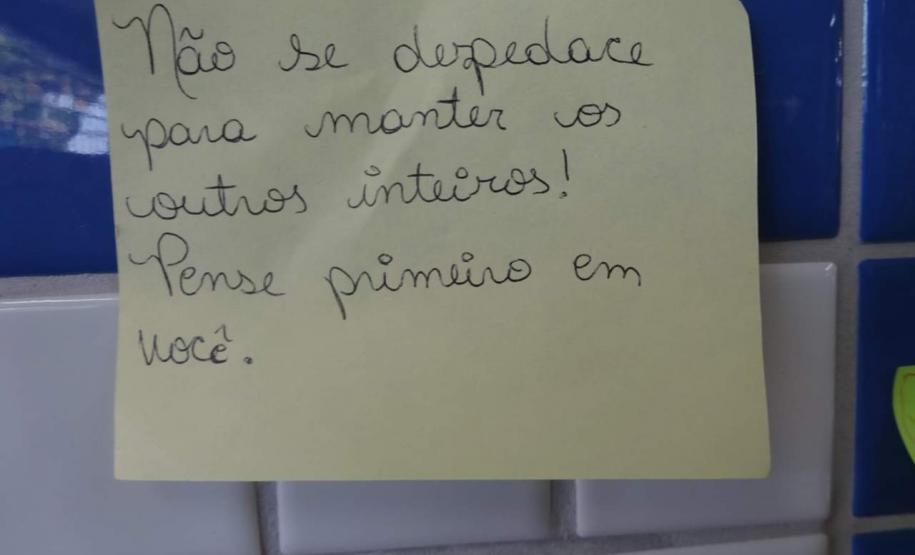 Não se despedace
para manter os
outros inteiros!
Pense primeiro em
você.